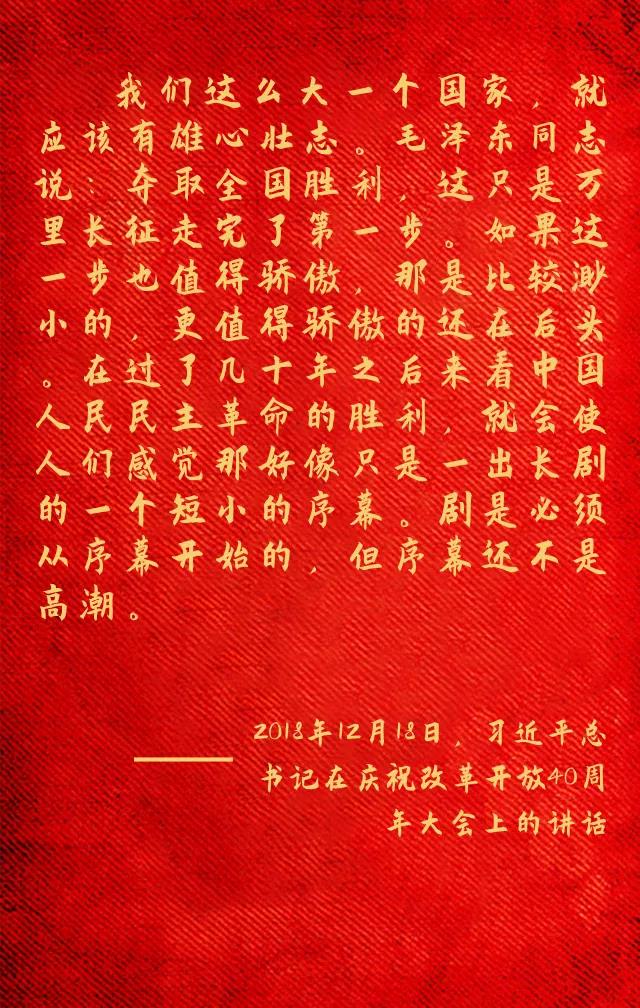 我们这么大一个国家，就
应该有雄心壮志。毛泽东同志
说：夺取全国胜利，这只是万
里长征走完了第一步。如果这
一步也值得骄傲，那是比较渺
小的，更值得骄傲的还在后头
。在过了几十年之后来看中国
人民民主革命的胜利，就会使
人们感觉那好像只是一出长剧
的一个短小的序幕。剧是必须
从序幕开始的，但序幕还不是
高潮。
2018年12月18日，习近平总
——书记在庆祝改革开放40周
年大会上的讲话